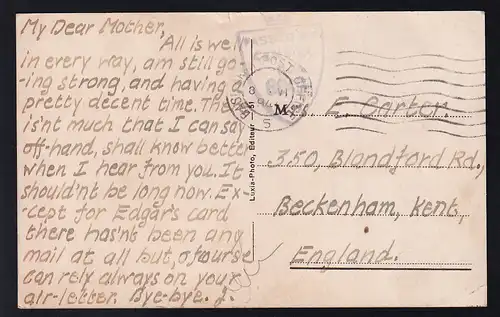 My Dear Mother,
All is well
in every way, am still go-
ing strong, and having a
pretty decent time. There
is'nt much that I can say
off-hand, shall know better
when I hear from you. It
should'nt be long now. Ex-
cept for Edgar's card
there has'nt been any
mail at all but, of course
can rely always on your
air-letter. Bye-bye. J.
Luxia-Photo, Editeur
M S. E. Carter.
350, Blandford Rd.,
Beckenham, Kent,
England.